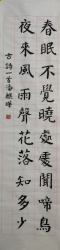 春眠不覺曉處處聞啼鳥
夜來風雨聲花落知多少
古詩一首